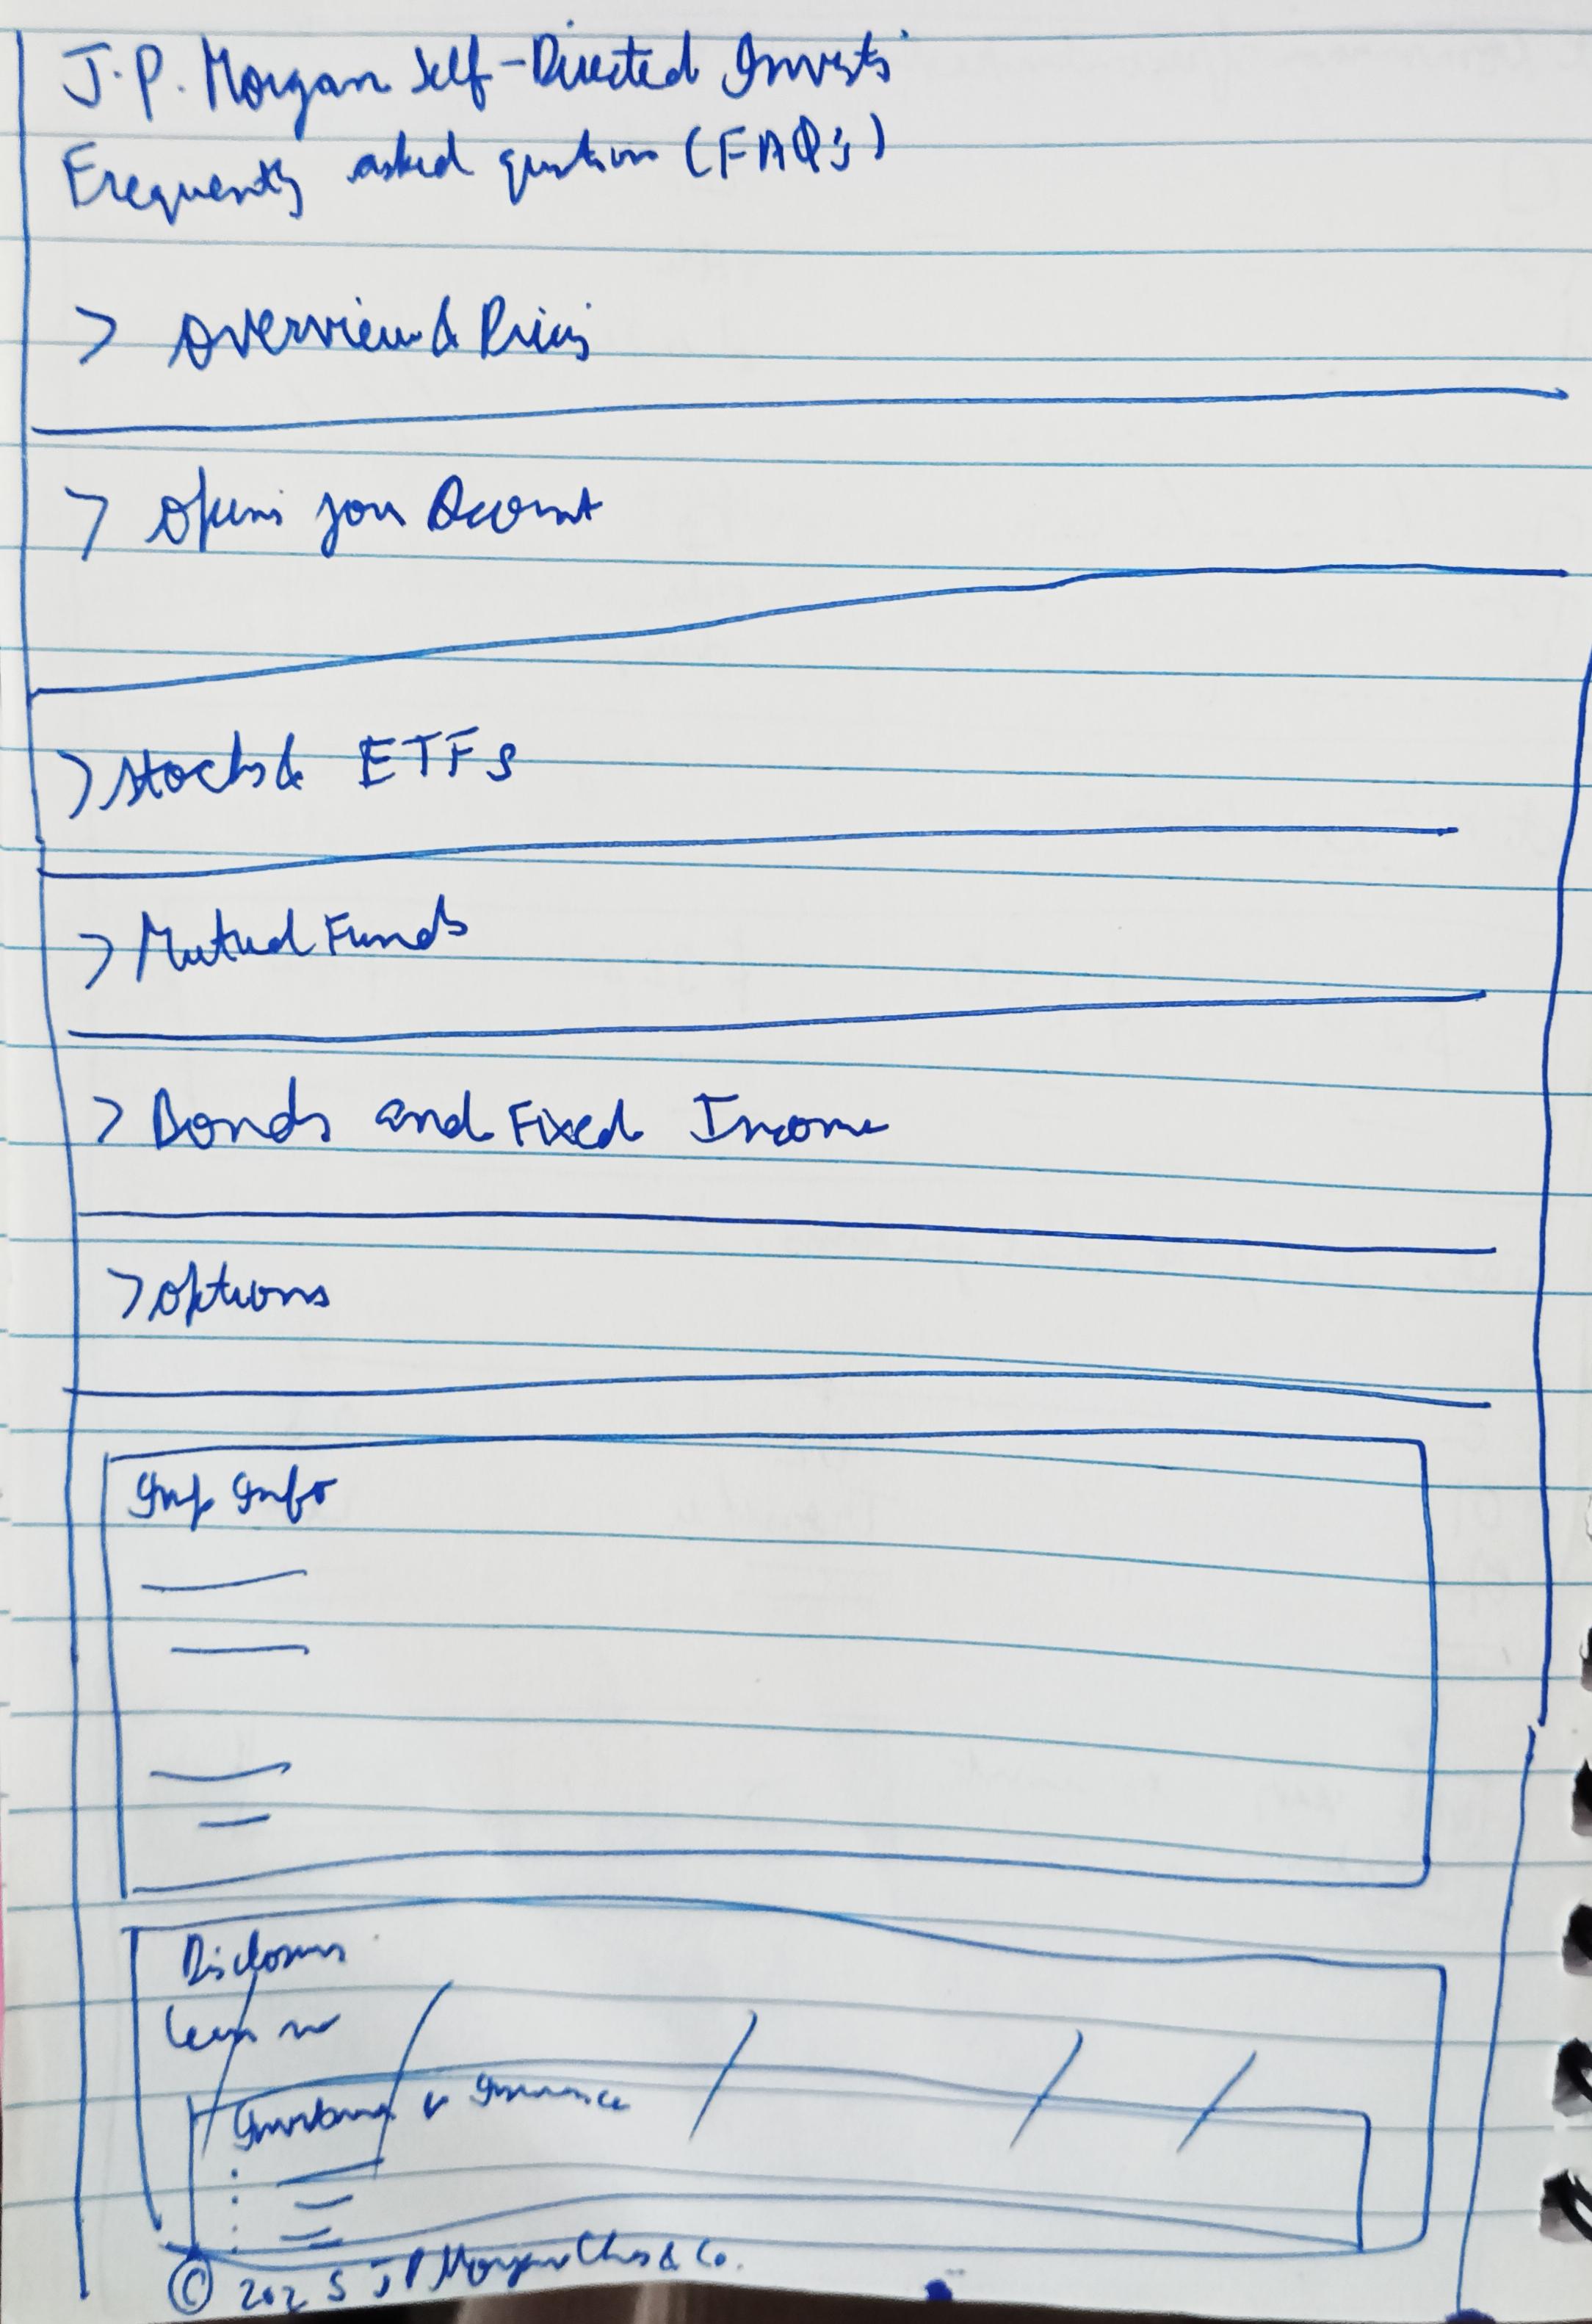 J.P. Morgan Self-Directed Invests
Frequently asked question (FAQ's)
> Overview & Pricing
> Opening your Account
> Stocks & ETFs
> Mutual Funds
> Bonds and Fixed Income
> Options
Imp Info
Disclosures
Investment & Insurance
© 2025 JP Morgan Chas & Co.